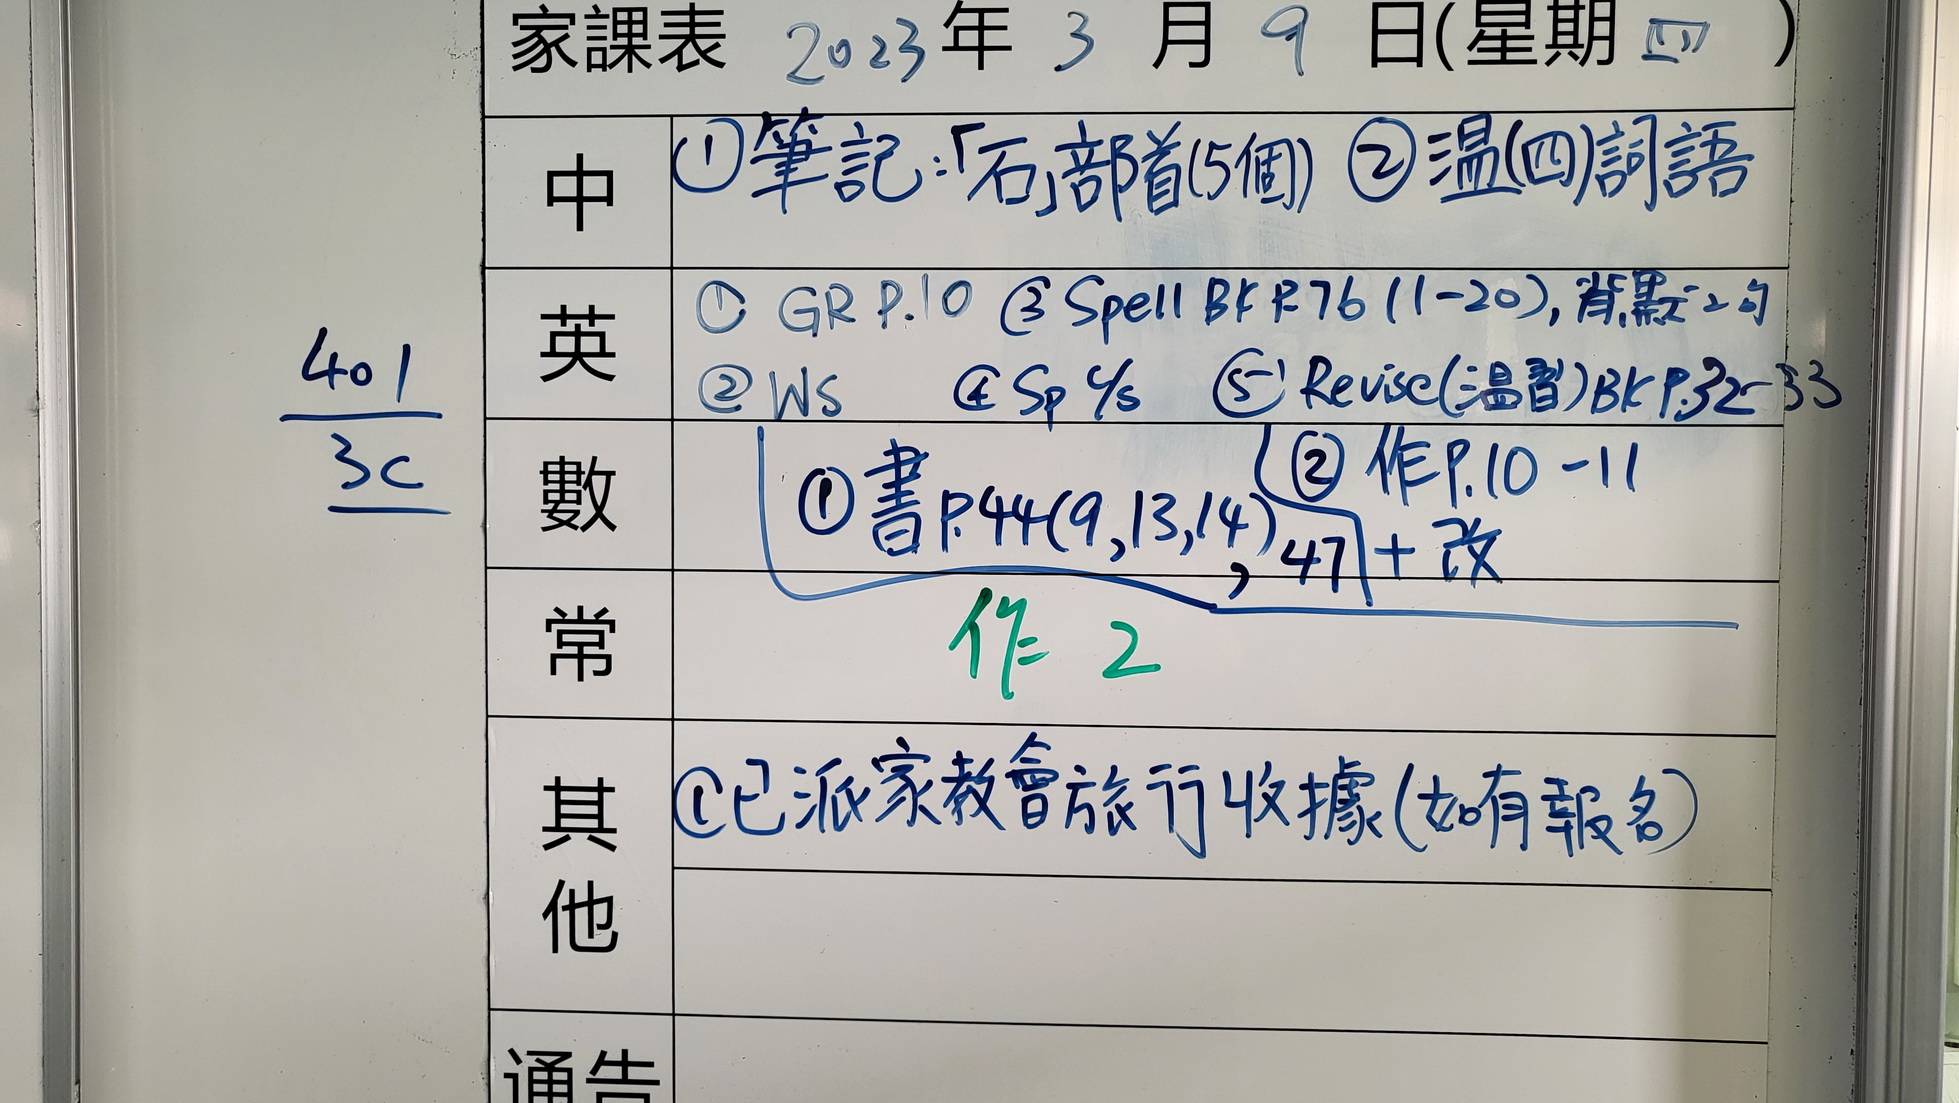 家課表 2023年3月9日(星期四)
中 ①筆記:「石」部首(5個) ②温(四)詞語
英 ① GR P.10 ③ Spell BK P.76 (1-20), 背默二句
② WS ④ Sp c/s ⑤ Revise(温習)BK P.32-33
401
3C
數 ①書P.44(9,13,14),47 ②作P.10-11
+改
常 作 2
其他 ①已派家教會旅行收據(如有報名)
通告